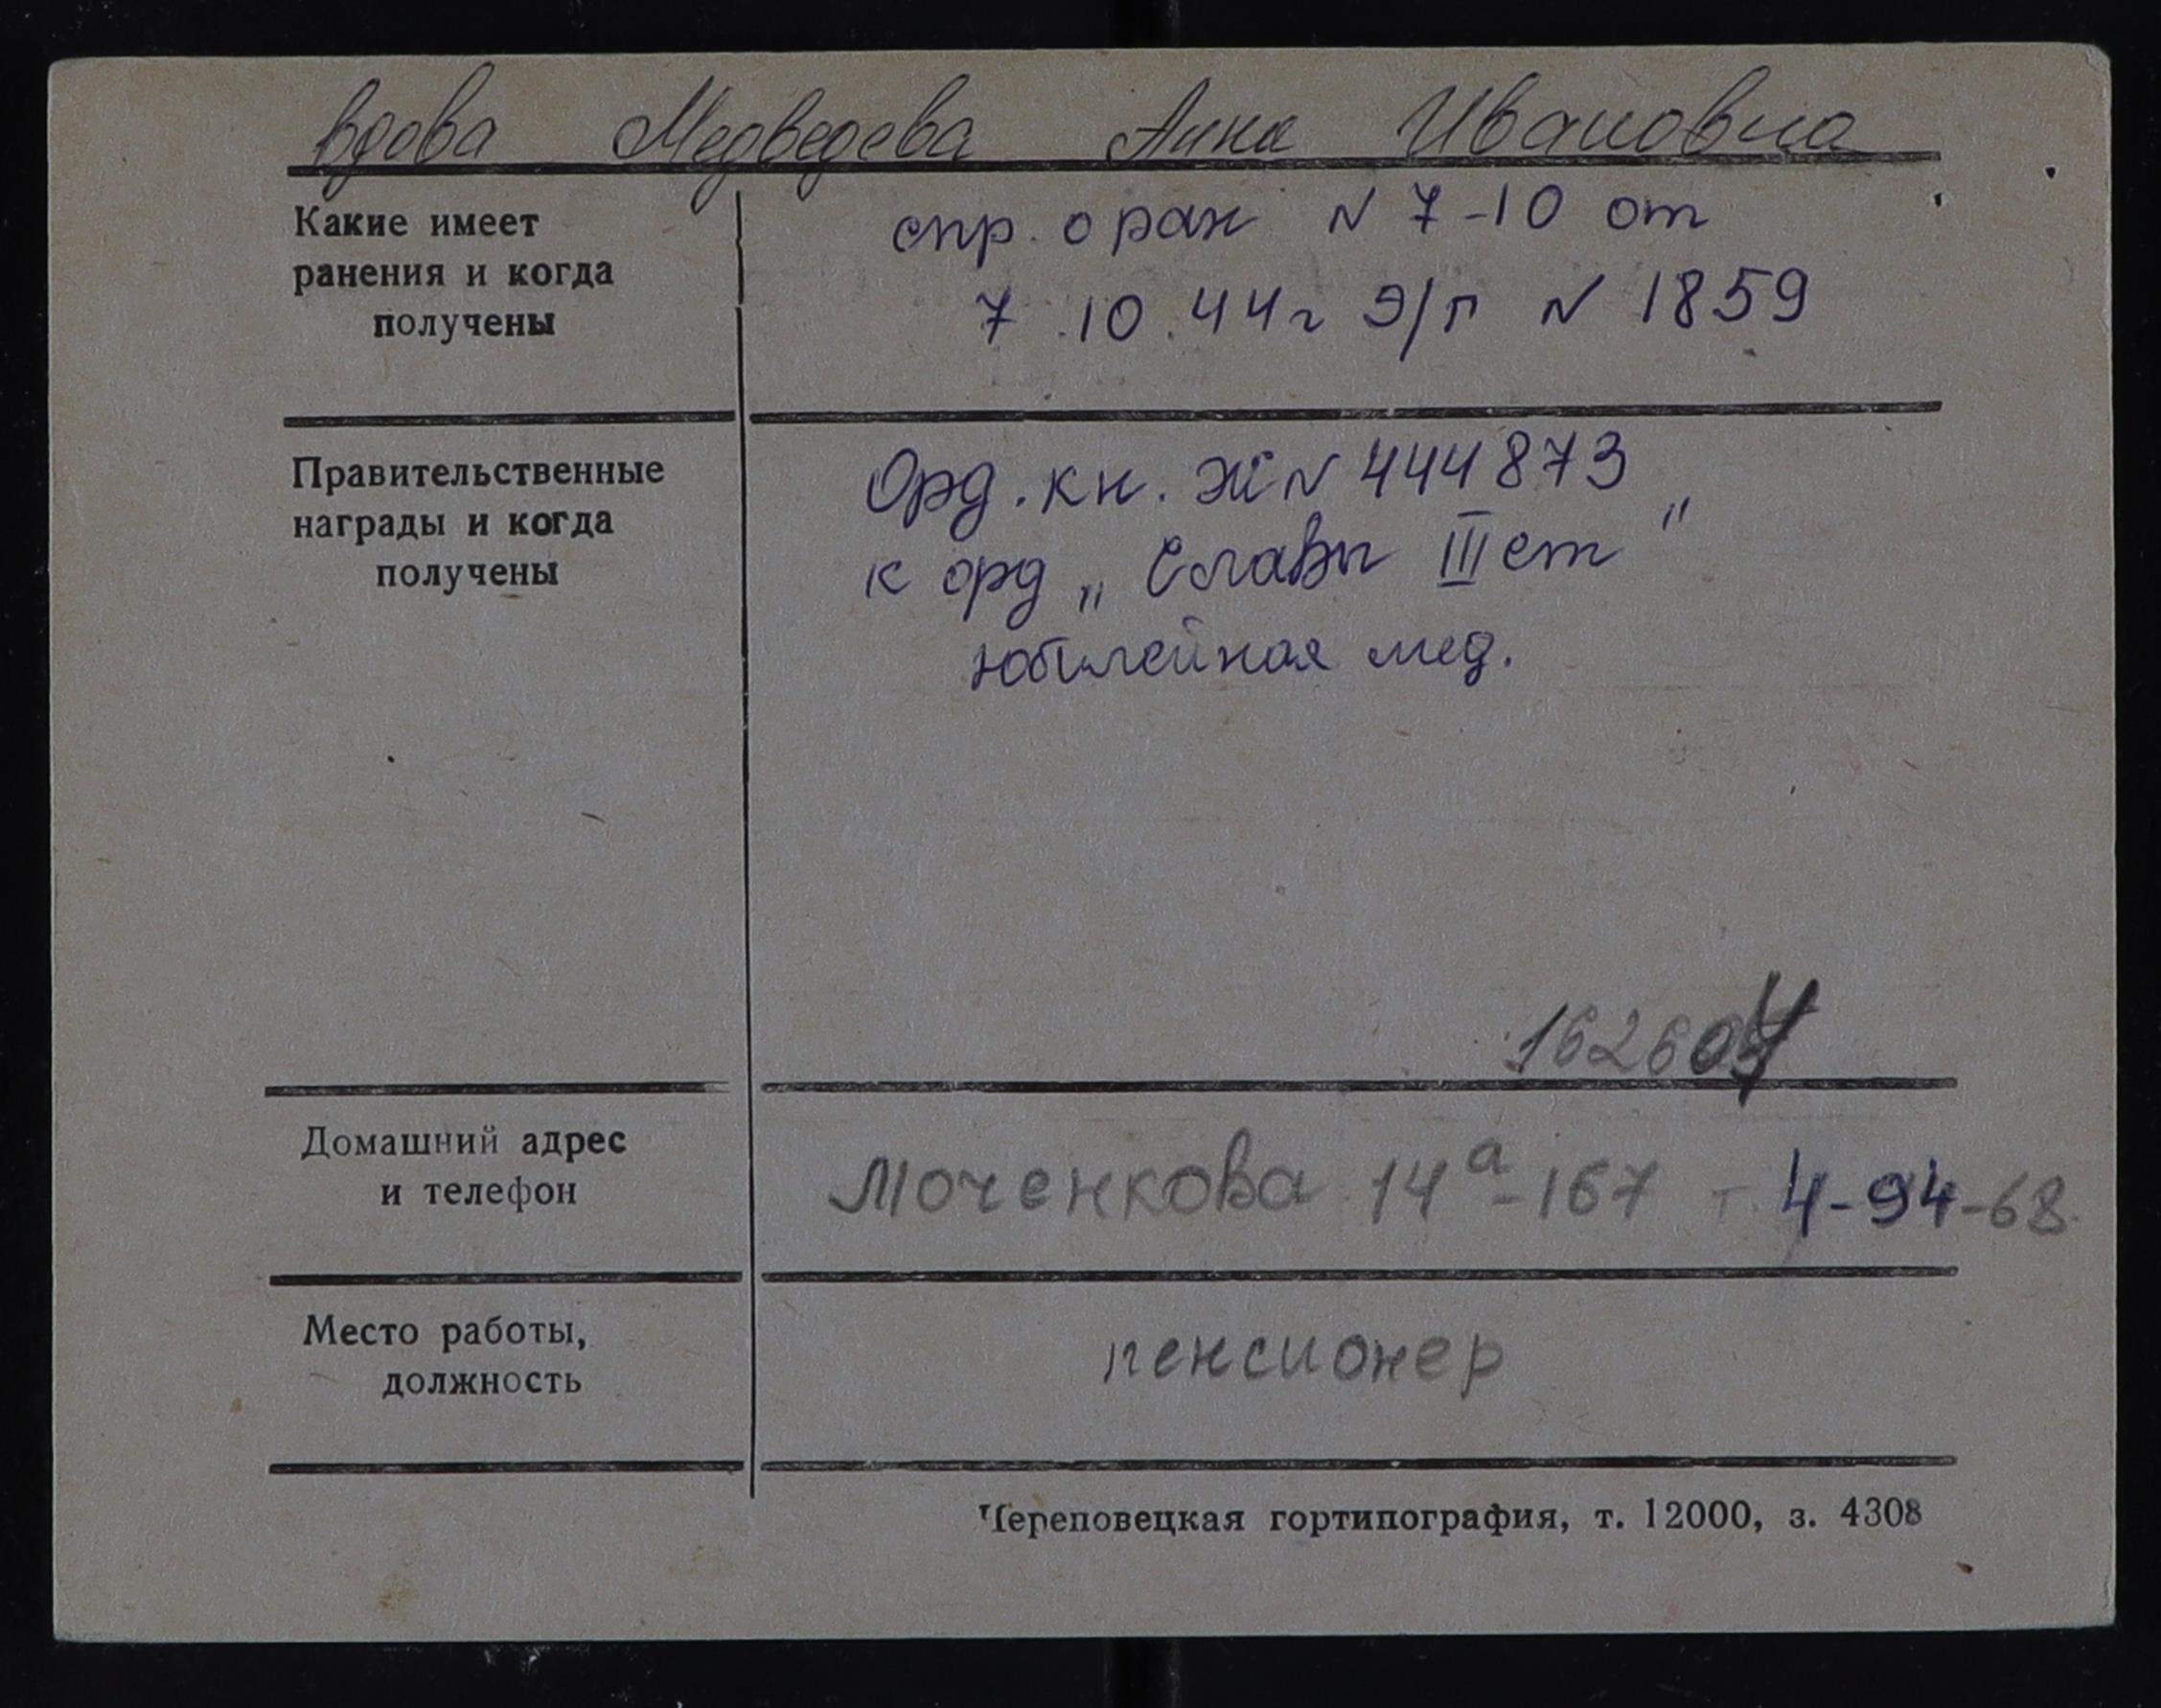 вдова Медведева Анна Ивановна
Какие имеет
ранения и когда
получены
спр. о ран N 7-10 от
7.10.44г Э/г N 1859
Правительственные
награды и когда
получены
Орд. кн. Ж N 444873
к орд „Славы III ст"
юбилейная мед.
Домашний адрес
и телефон
Моченкова 14а-167 т. 4-94-68
Место работы,
должность
пенсионер
Череповецкая гортипография, т. 12000, з. 4308